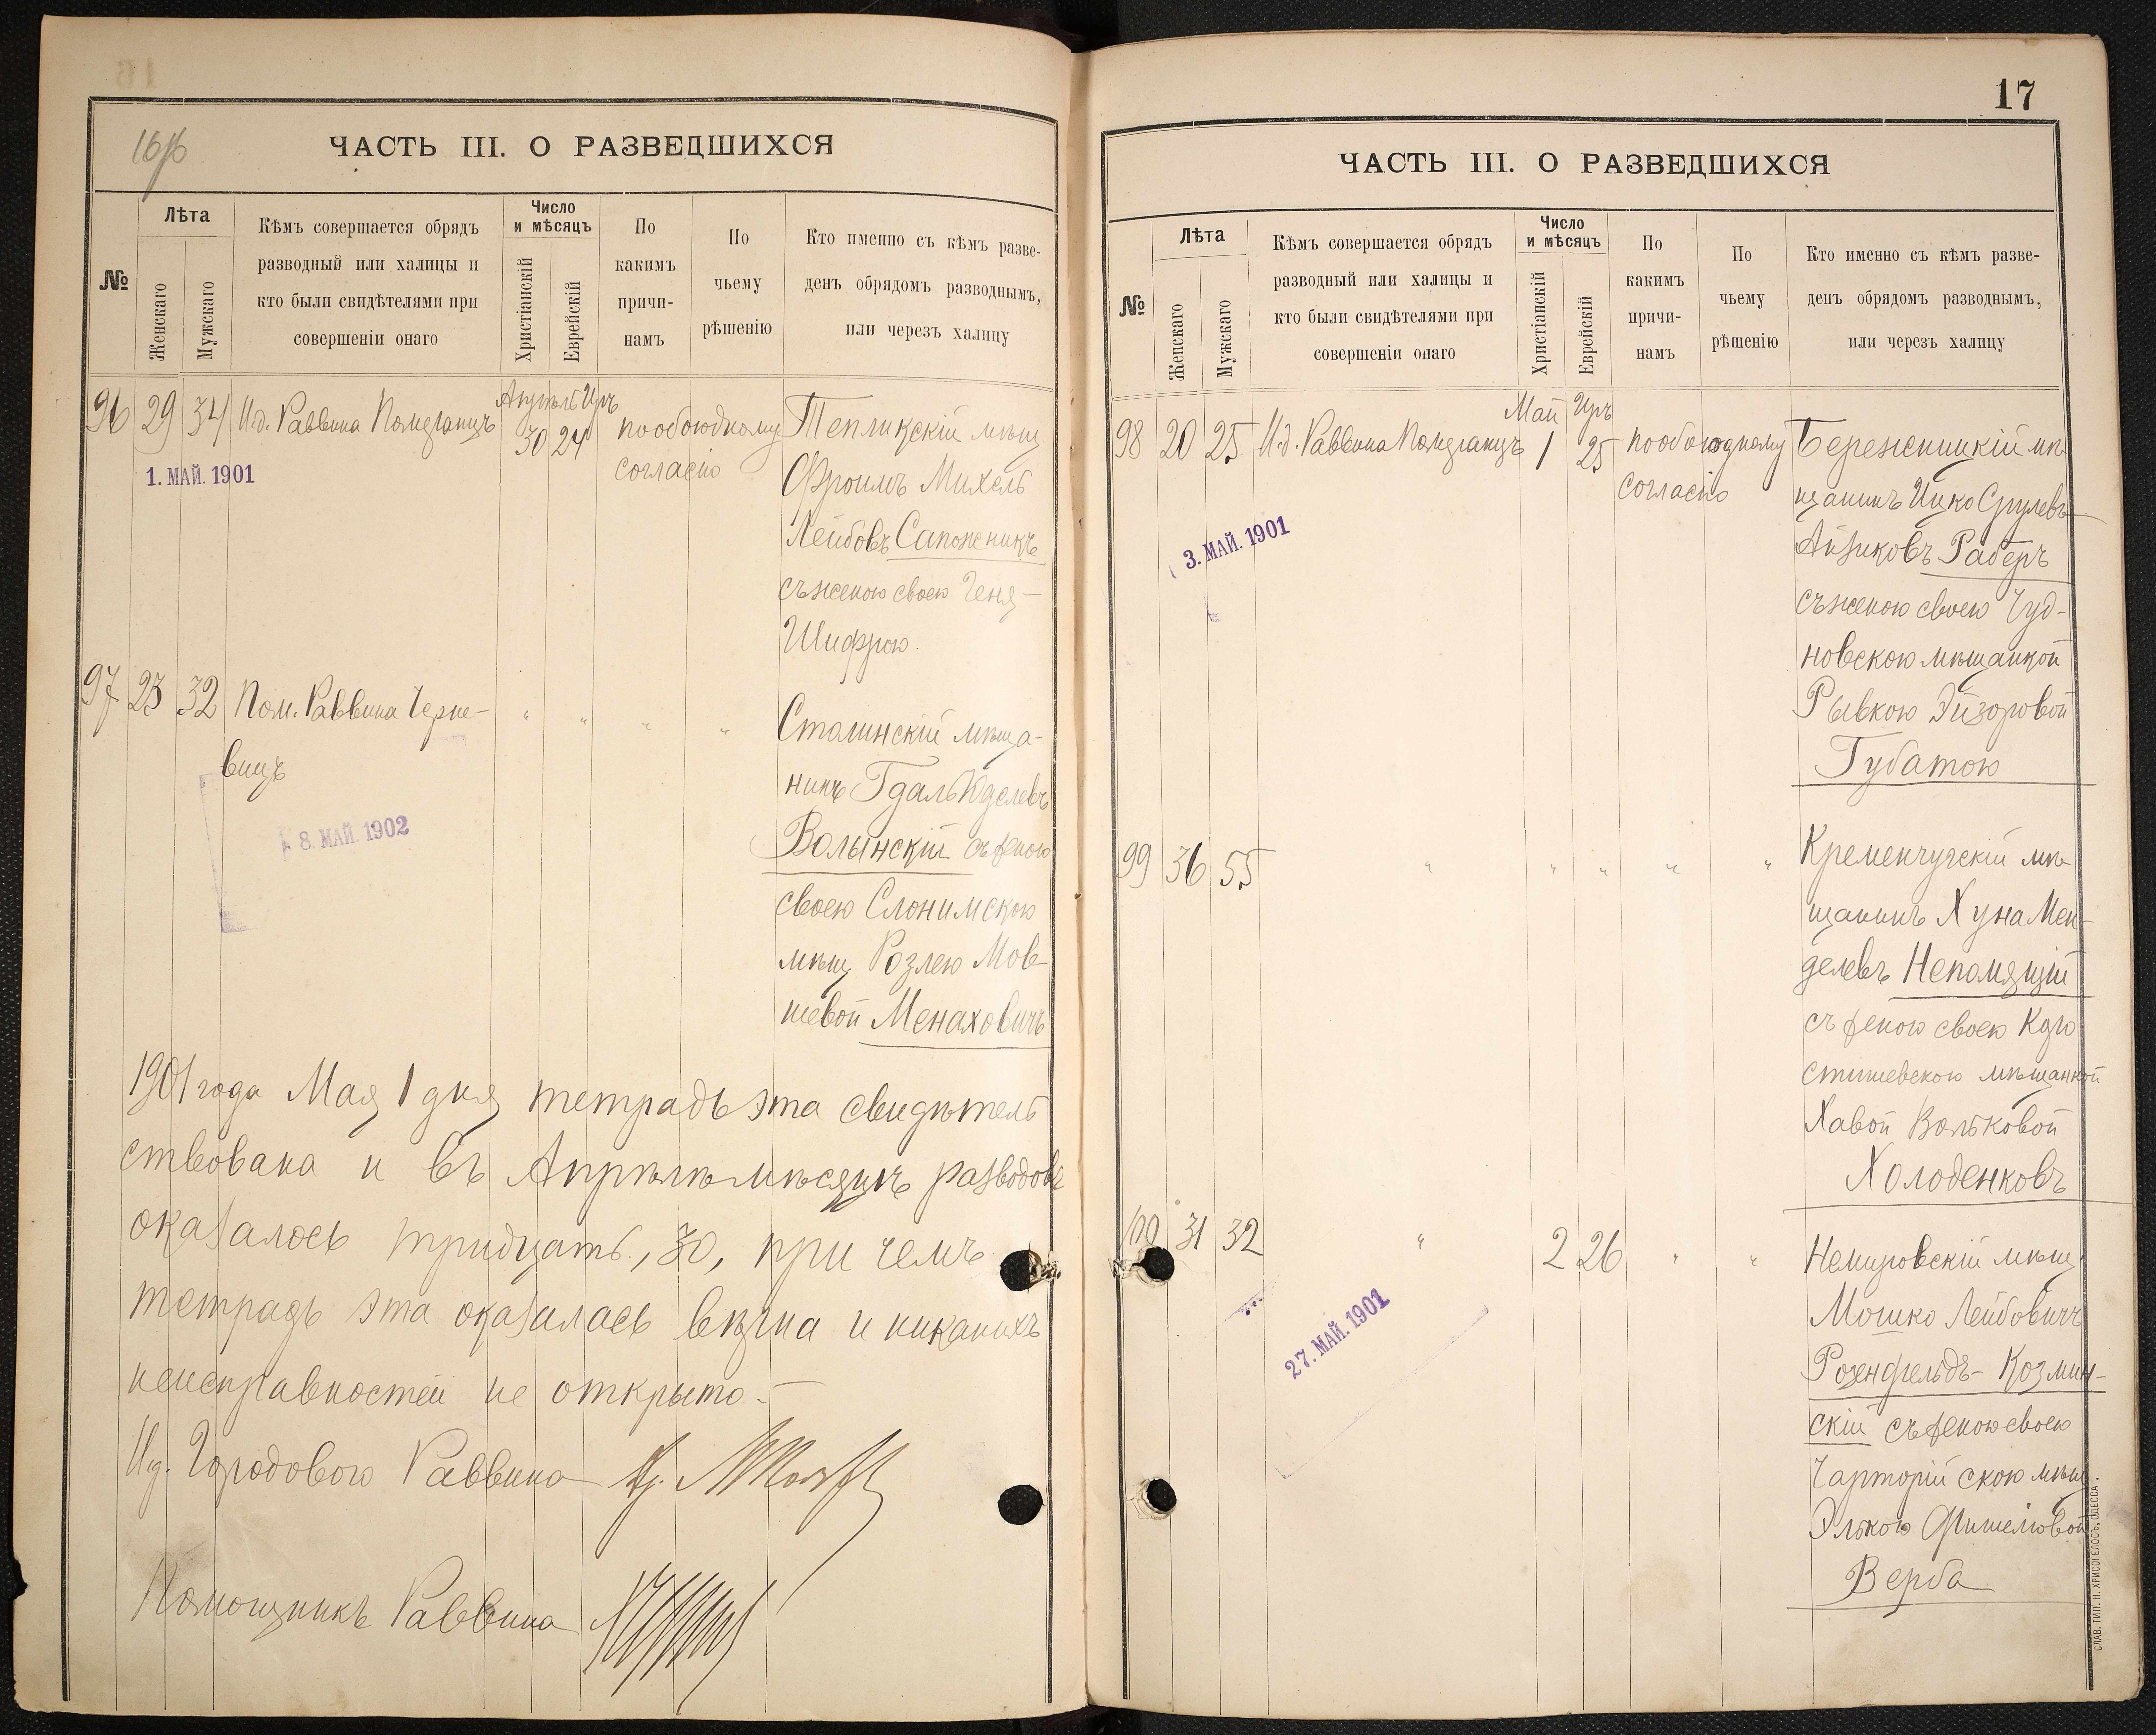 16/16
ЧАСТЬ III. О РАЗВЕДШИХСЯ
№
Лѣта
Женскаго
Мужскаго
Кѣмъ совершается обрядъ
разводный или халицы и
кто были свидѣтелями при
совершеніи онаго
Число
и мѣсяцъ
Христіанскій
Еврейскій
По
какимъ
причи-
намъ
По
чьему
рѣшенію
Кто именно съ кѣмъ разве-
денъ обрядомъ разводнымъ,
или черезъ халицу
96 29 34 И.д. Раввина Померанцъ
Апрѣль Иръ
30 24
по обоюдному
согласію
Тепликскій мѣщ
Фроимъ Михель
Лейбовъ Сапожникъ
съ женою своею Геня-
Шифрою.
1. МАЙ. 1901
97 23 32 Пом. Раввина Черне-
вицъ
" " " "
Столинскій мѣща-
нинъ Гдаль Юделевъ
Волынскій съ женою
своею Слонимскою
мѣщ Розлею Мов-
шевой Менаховичъ
8. МАЙ. 1902
1901 года Мая 1 дня тетрадь эта свидѣтель
ствована и въ Апрѣлѣ мѣсяцѣ разводовъ
оказалось тридцать, 30, при чемъ
тетрадь эта оказалась вѣрна и никакихъ
неисправностей не открыто.-
И.д. Городового Раввина
Помощникъ Раввина
17
ЧАСТЬ III. О РАЗВЕДШИХСЯ
№
Лѣта
Женскаго
Мужскаго
Кѣмъ совершается обрядъ
разводный или халицы и
кто были свидѣтелями при
совершеніи онаго
Число
и мѣсяцъ
Христіанскій
Еврейскій
По
какимъ
причи-
намъ
По
чьему
рѣшенію
Кто именно съ кѣмъ разве-
денъ обрядомъ разводнымъ,
или черезъ халицу
98 20 25 И.д. Раввина Померанцъ
Май Иръ
1 25
по обоюдному
согласію
Бережницкій мѣ-
щанинъ Ицко Срулевъ-
Айзиковъ Раберъ
съ женою своею Чуд-
новскою мѣщанкой
Рывкою Эйзоровой
Губатою
3. МАЙ. 1901
99 36 55 " " " " "
Кременчугскій мѣ-
щанинъ Хуна Мен-
делевъ Непомящій
съ женою своею Коро
стишевскою мѣщанкой
Хавой Вольковой
Холоденковъ
100 31 32 " 2 26 " "
Немировскій мѣщ.
Мошко Лейбовичъ
Розенфельдъ-Козмин-
скій съ женою своею
Чарторійскою мѣщ.
Элькою Фишелювой
Верба
27. МАЙ. 1901
СЛАВ. ТИП. Н. ХРИСОГЕЛОСЪ, ОДЕССА.